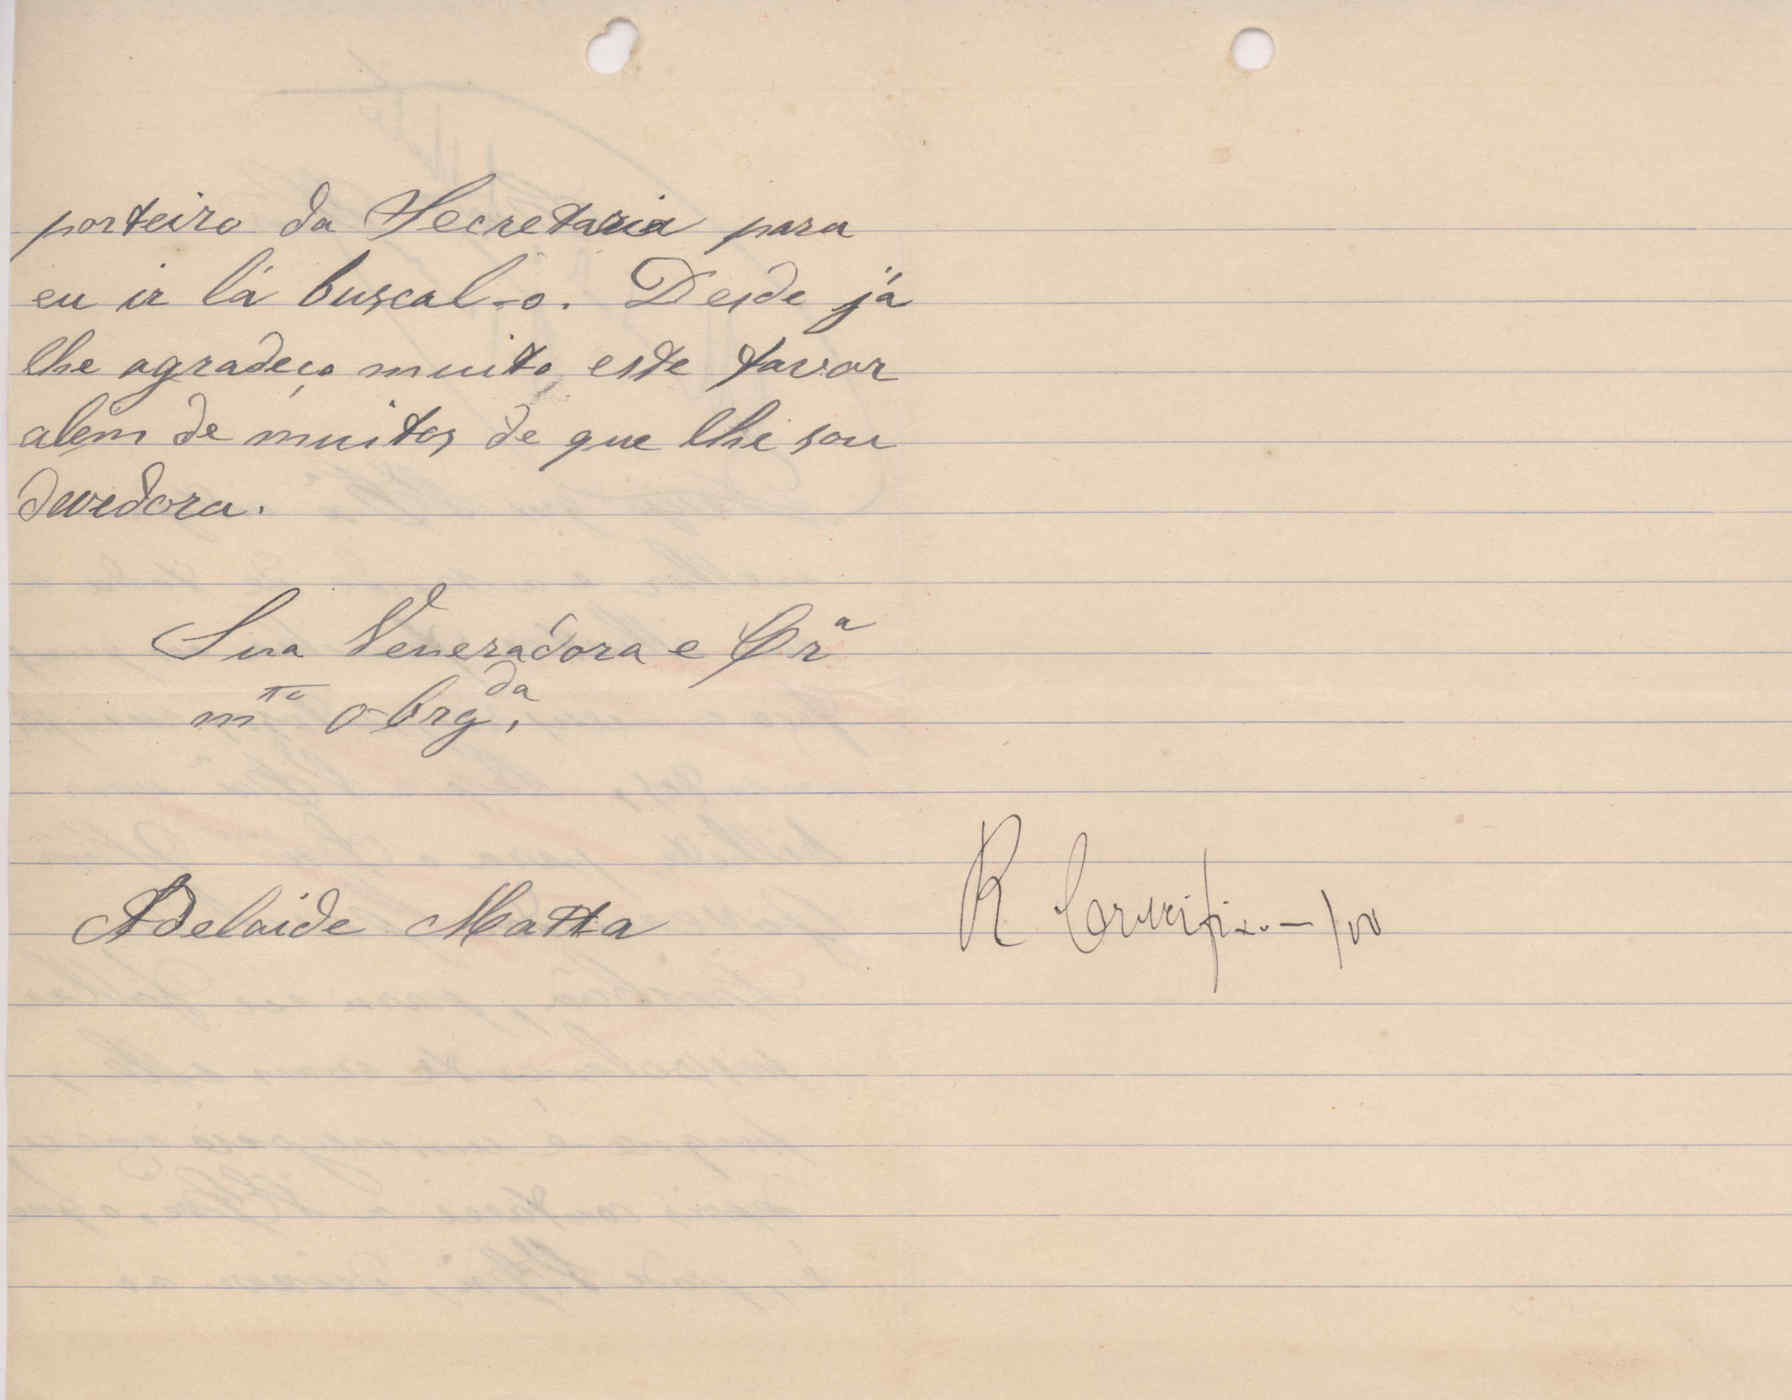 porteiro da Secretaria para
eu ir lá buscal-o. Desde já
lhe agradeço muito este favor
alem de muitos de que lhe sou
devedora.
Sua Veneradora e Crª
mᵗᵒ obrgᵈᵃ.
Adelaide Matta
R Crucifixo - 100